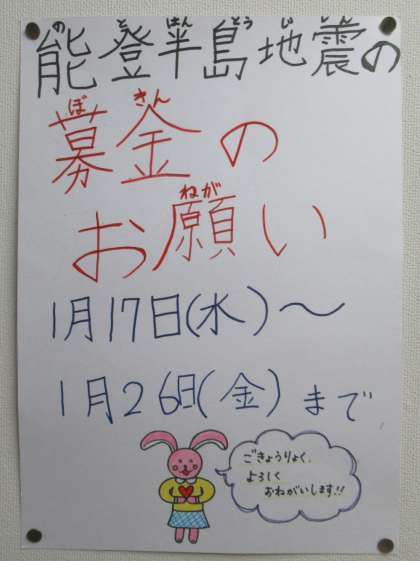 能登半島地震の
募金の
お願い
1月17日(水)～
1月26日(金)まで
ごきょうりょく、
よろしく
おねがいします!!